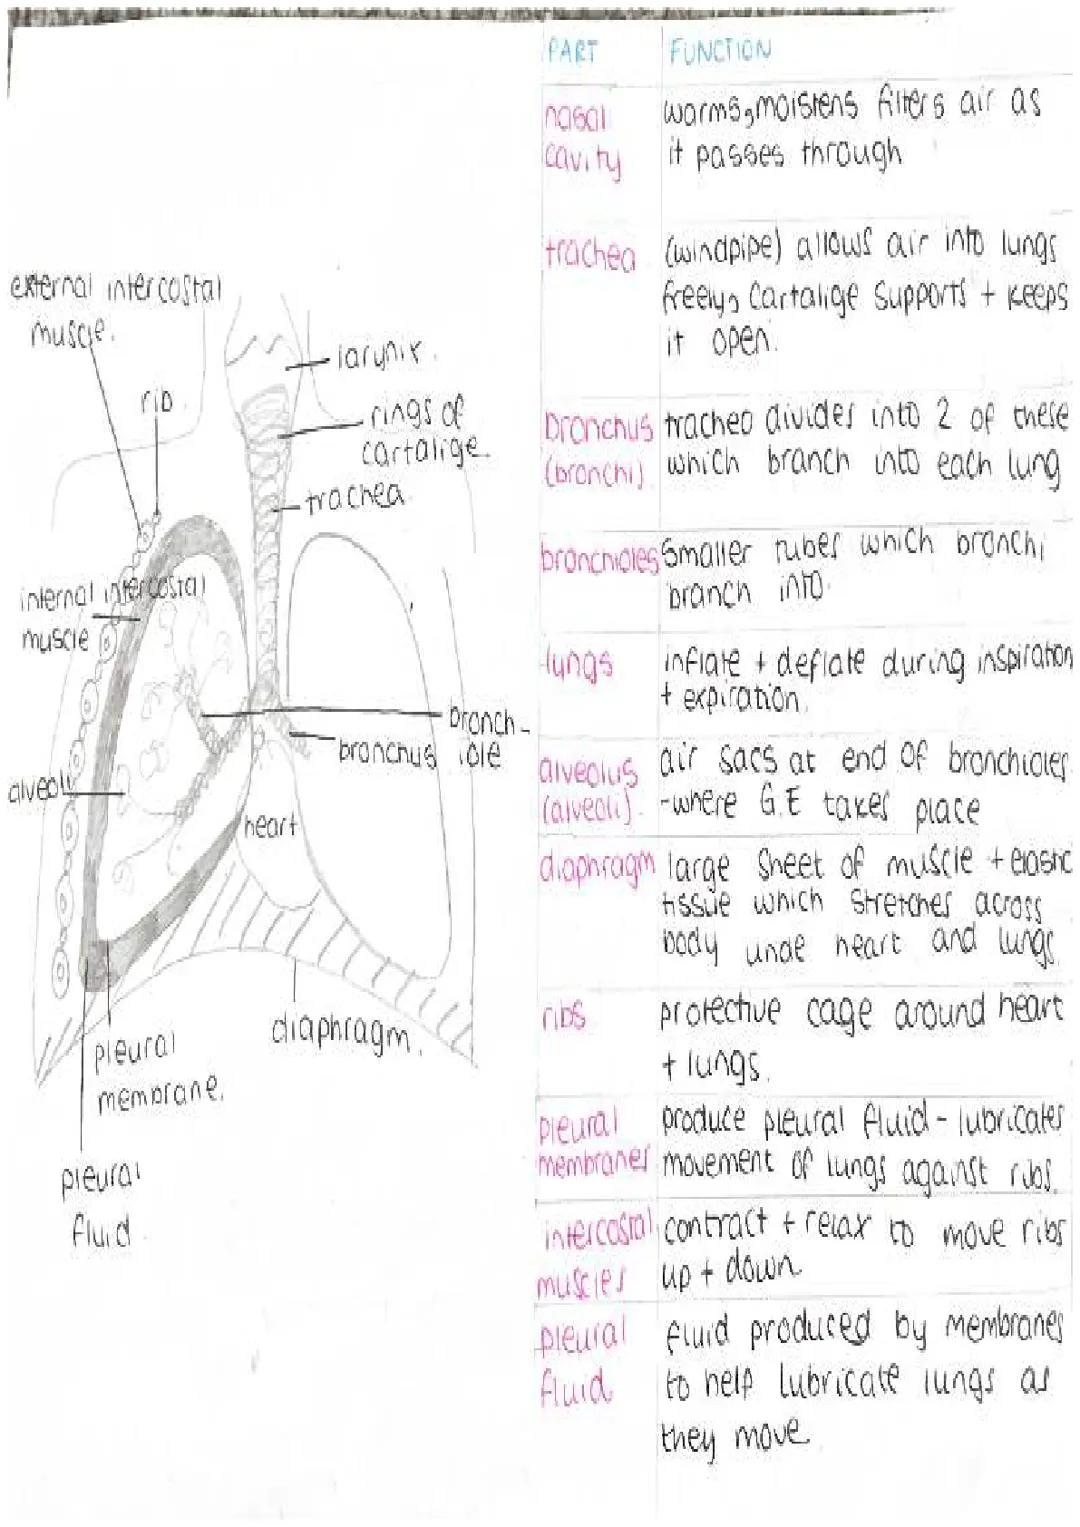 external intercostal
muscle.
rib
larynix.
rings of
cartalige.
trachea
internal intercostal
muscle
bronch-
iole
bronchus
alveoli
heart
diaphragm.
pleural
membrane.
pleural
fluid.
PART FUNCTION
nasal warms, moistens filters air as
cavity it passes through
trachea (windpipe) allows air into lungs
freely, Cartalige supports + keeps
it open.
bronchus trachea divides into 2 of these
(bronchi). which branch into each lung
bronchioles smaller tubes which bronchi
branch into.
lungs inflate + deflate during inspiration
+ expiration.
alveolus air sacs at end of bronchioles
(alveoli). -where G.E takes place
diaphragm large sheet of muscle + elastic
tissue which stretches across
body unde heart and lungs.
ribs protective cage around heart
+ lungs.
pleural produce pleural fluid - lubricates
membranes movement of lungs against ribs.
intercostal contract + relax to move ribs
muscles up + down
pleural fluid produced by membranes
fluid to help lubricate lungs as
they move.